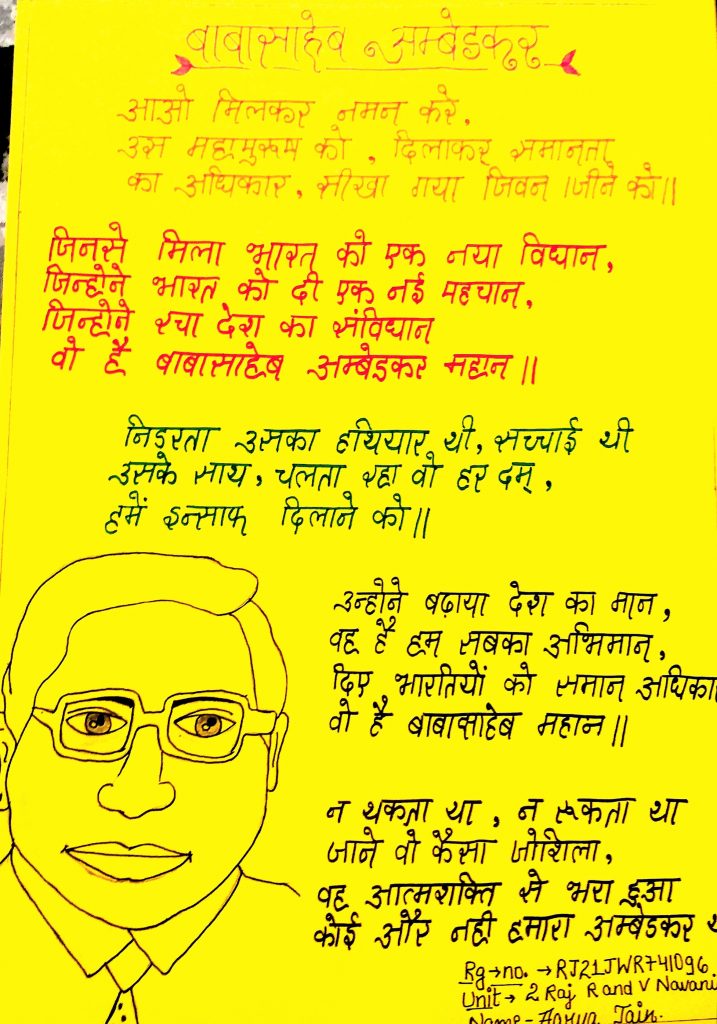 बाबासाहेब अम्बेडकर
आओ मिलकर नमन करे,
उस महापुरूष को, दिलाकर समानता
का अधिकार, सीखा गया जिवन जीने को॥
जिनसे मिला भारत को एक नया विधान,
जिन्होने भारत को दी एक नई पहचान,
जिन्होने रचा देश का संविधान
वो है बाबासाहेब अम्बेडकर महान॥
निडरता उसका हथियार थी, सच्चाई थी
उसके साथ, चलता रहा वो हर दम्,
हमें इन्साफ दिलाने को॥
उन्होने बढ़ाया देश का मान,
वह है हम सबका अभिमान,
दिए भारतियों को समान अधिकार
वो है बाबासाहेब महान॥
न थकता था, न रूकता था
जाने वो कैसा जोशिला,
वह आत्मशक्ति से भरा हुआ
कोई और नही हमारा अम्बेडकर
Rg→no. → RJ21JWR741096.
Unit → 2 Raj R and V Navani
Name - Aarya Jain.